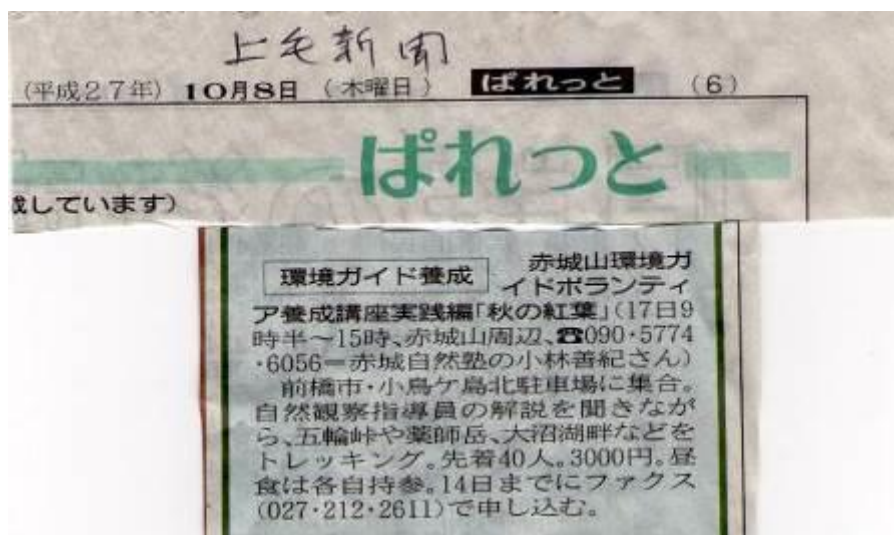 上毛新聞
(平成27年) 10月8日 (木曜日) ぱれっと (6)
ぱれっと
載しています)
環境ガイド養成 赤城山環境ガ
イドボランティ
ア養成講座実践編「秋の紅葉」(17日9
時半～15時、赤城山周辺、☎090・5774
・6056＝赤城自然塾の小林善紀さん)
前橋市・小鳥ケ島北駐車場に集合。
自然観察指導員の解説を聞きなが
ら、五輪峠や薬師岳、大沼湖畔などを
トレッキング。先着40人。3000円。昼
食は各自持参。14日までにファクス
(027・212・2611)で申し込む。